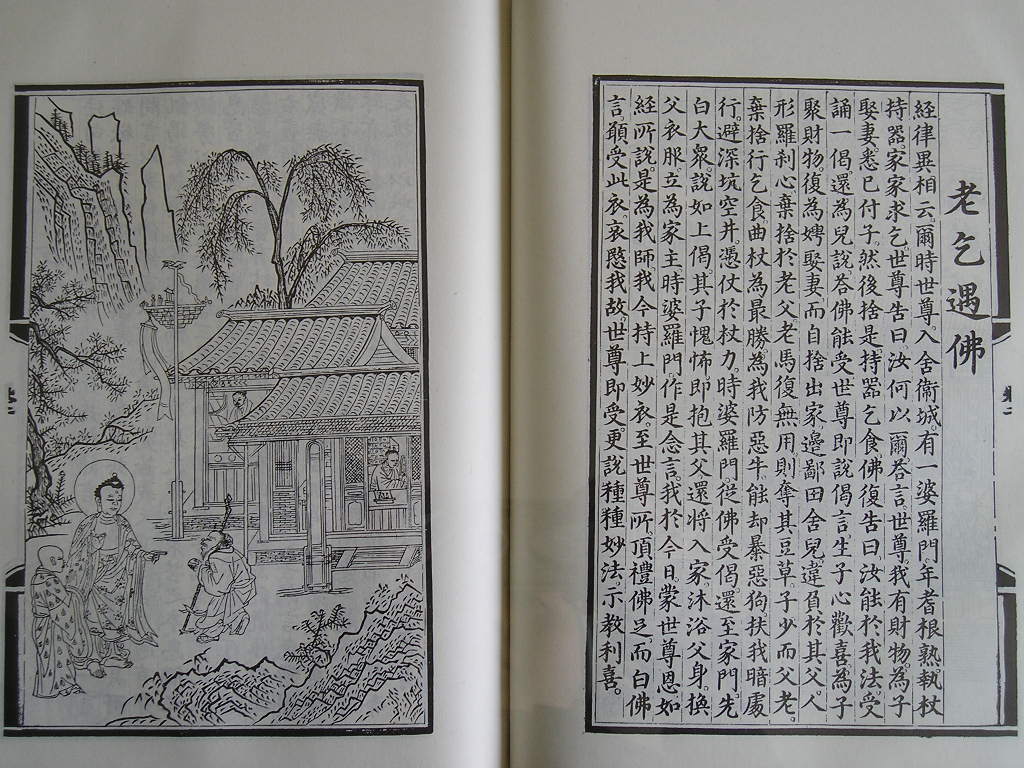 老乞遇佛
經律異相云。爾時世尊。入舍衞城。有一婆羅門。年耆根熟。執杖
持器。家家求乞。世尊告曰。汝何以爾。答言。世尊。我有財物。為子
娶妻。悉已付子。然後捨是。持器乞食。佛復告曰。汝能於我法受
誦一偈。還為兒說。答佛能受。世尊即說偈言。生子心歡喜。為子
聚財物。復為娉娶妻。而自捨出家。邊鄙田舍兒。違負於其父。人
形羅刹心。棄捨於老父。老馬復無用。則奪其豆草。子少而父老。
棄捨行乞食。曲杖為最勝。為我防惡牛。能却暴惡狗。扶我暗處
行。避深坑空井。憑仗於杖力。時婆羅門。從佛受偈。還至家門。先
白大衆。說如上偈。其子愧怖。即抱其父。還將入家。沐浴父身。換
父衣服。立為家主。時婆羅門。作是念言。我於今日。蒙世尊恩。如
經所說。是為我師。我今持上妙衣。至世尊所。頂禮佛足。而白佛
言。願受此衣。哀愍我故。世尊即受。更說種種妙法。示教利喜。